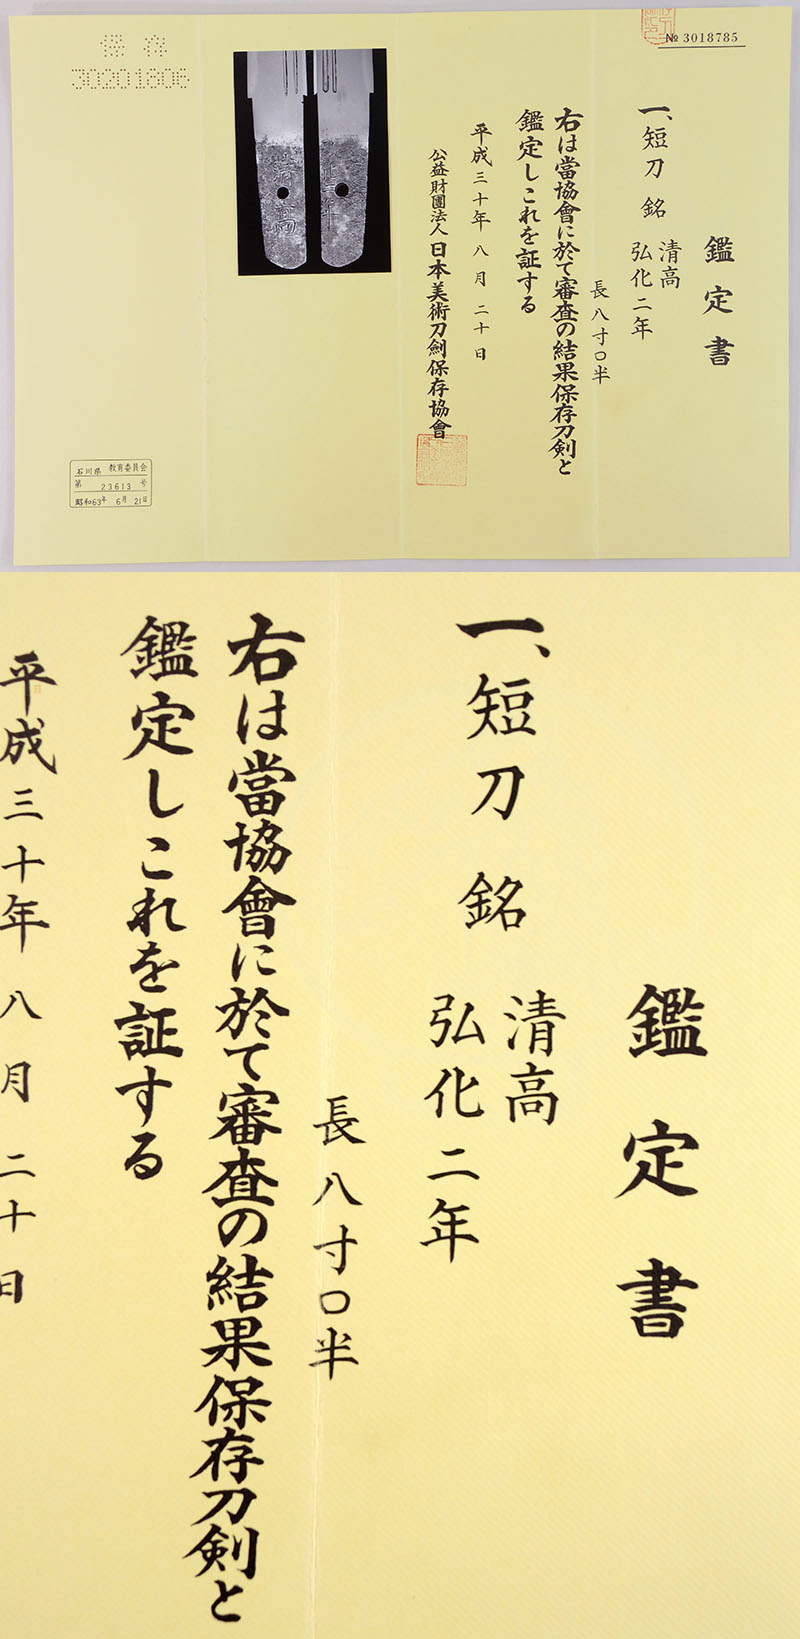 № 3018785
鑑定書
一、短刀 銘 清高
弘化二年
長 八寸〇半
右は當協會に於て審査の結果保存刀剣と
鑑定しこれを証する
平成三十年 八月 二十日
公益財團法人 日本美術刀劍保存協會
清高
弘化二年
保存
30201806
石川県 教育委員会
第 23613 号
昭和63年 6月 21日
鑑定書
一、短刀 銘 清高
弘化二年
長 八寸〇半
右は當協會に於て審査の結果保存刀剣と
鑑定しこれを証する
平成三十年 八月 二十日